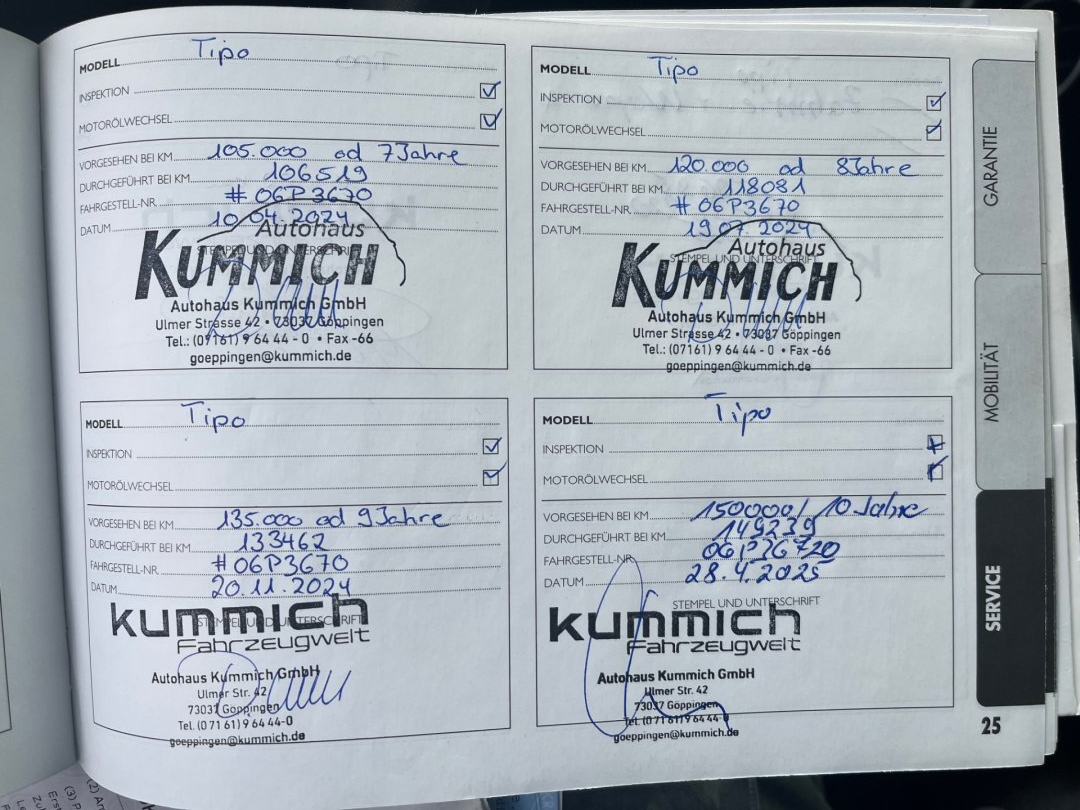 MODELL Tipo
INSPEKTION ☑
MOTORÖLWECHSEL ☑
VORGESEHEN BEI KM 105.000 od 7 Jahre
DURCHGEFÜHRT BEI KM 106519
FAHRGESTELL-NR. # 06P3670
DATUM 10.04.2024
STEMPEL UND UNTERSCHRIFT
Autohaus
KUMMICH
Autohaus Kummich GmbH
Ulmer Strasse 42 • 73037 Göppingen
Tel.: (07161) 9 64 44 - 0 • Fax -66
goeppingen@kummich.de
MODELL Tipo
INSPEKTION ☑
MOTORÖLWECHSEL ☑
VORGESEHEN BEI KM 120.000 od 8 Jahre
DURCHGEFÜHRT BEI KM 118081
FAHRGESTELL-NR. # 06P3670
DATUM 19.07.2024
STEMPEL UND UNTERSCHRIFT
Autohaus
KUMMICH
Autohaus Kummich GmbH
Ulmer Strasse 42 • 73037 Göppingen
Tel.: (07161) 9 64 44 - 0 • Fax -66
goeppingen@kummich.de
MODELL Tipo
INSPEKTION ☑
MOTORÖLWECHSEL ☑
VORGESEHEN BEI KM 135.000 od 9 Jahre
DURCHGEFÜHRT BEI KM 133462
FAHRGESTELL-NR. # 06P3670
DATUM 20.11.2024
STEMPEL UND UNTERSCHRIFT
kummich
Fahrzeugwelt
Autohaus Kummich GmbH
Ulmer Str. 42
73037 Göppingen
Tel. (0 71 61) 9 64 44-0
goeppingen@kummich.de
MODELL Tipo
INSPEKTION ☑
MOTORÖLWECHSEL ☑
VORGESEHEN BEI KM 150000 / 10 Jahre
DURCHGEFÜHRT BEI KM 149239
FAHRGESTELL-NR.
DATUM 28.4.2025
STEMPEL UND UNTERSCHRIFT
kummich
Fahrzeugwelt
Autohaus Kummich GmbH
Ulmer Str. 42
73037 Göppingen
Tel. (0 71 61) 9 64 44-0
goeppingen@kummich.de
GARANTIE
MOBILITÄT
SERVICE
25